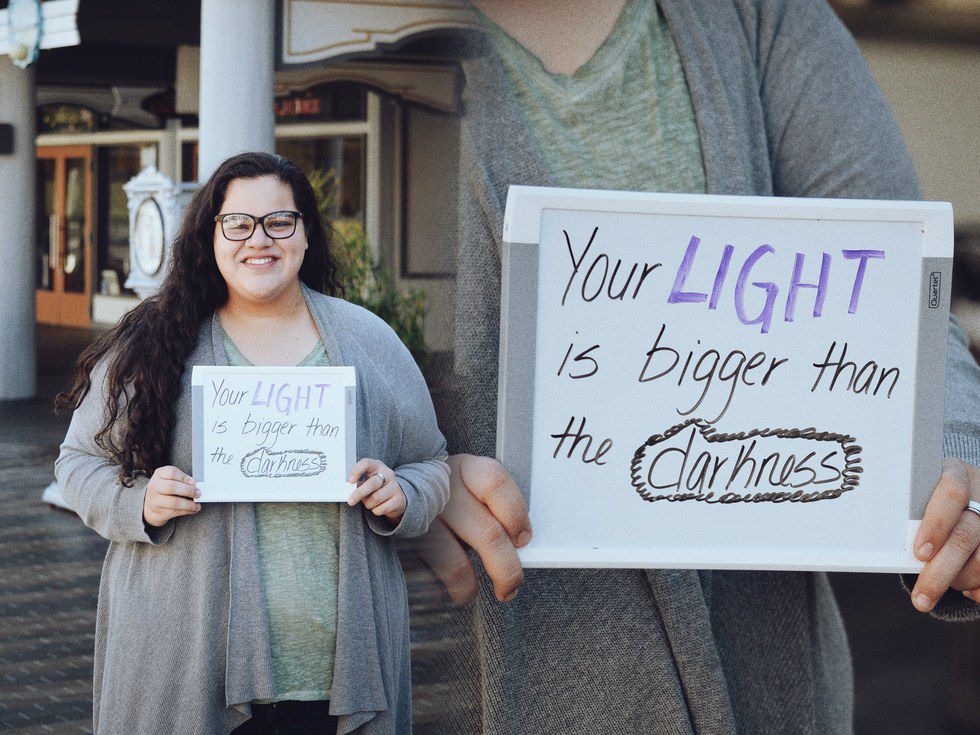 Your LIGHT
is bigger than
the darkness
Your LIGHT
is bigger than
the darkness
Quartet